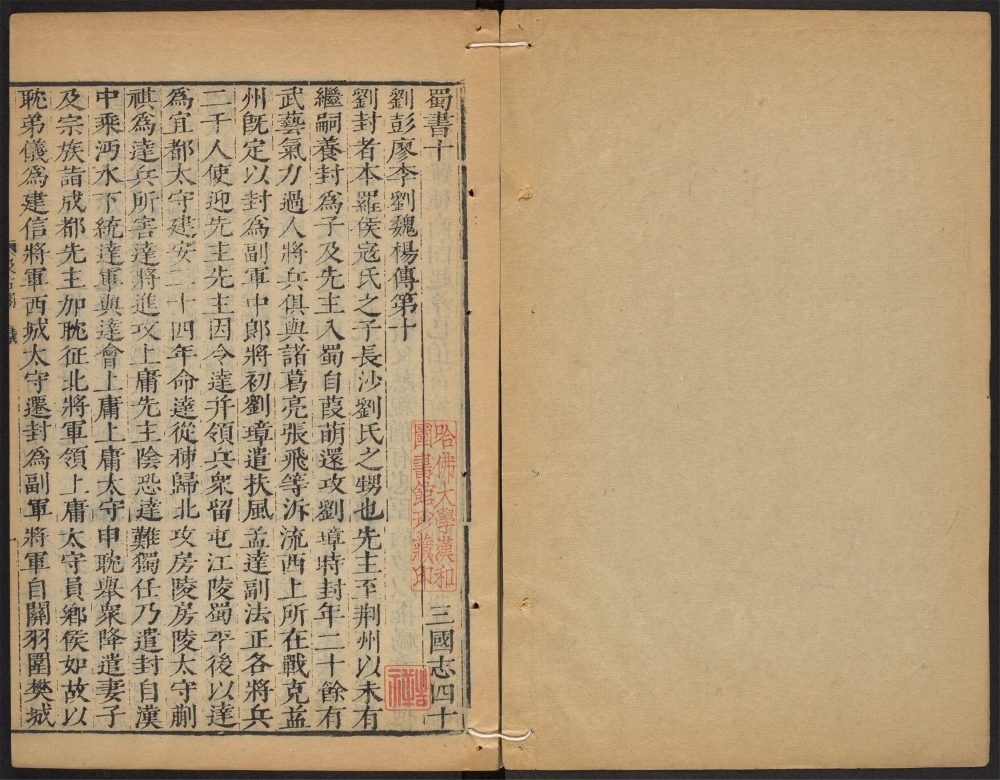 蜀書十 三國志四十
劉彭廖李劉魏楊傳第十
劉封者本羅侯寇氏之子長沙劉氏之甥也先主至荆州以未有
繼嗣養封爲子及先主入蜀自葭萌還攻劉璋時封年二十餘有
武藝氣力過人將兵俱與諸葛亮張飛等泝流西上所在戰克益
州旣定以封爲副軍中郎將初劉璋遣扶風孟達副法正各將兵
二千人使迎先主先主因令達并領兵衆留屯江陵蜀平後以達
爲宜都太守建安二十四年命達從秭歸北攻房陵房陵太守蒯
祺爲達兵所害達將進攻上庸先主陰恐達難獨任乃遣封自漢
中乘沔水下統達軍與達會上庸上庸太守申耽舉衆降遣妻子
及宗族詣成都先主加耽征北將軍領上庸太守員鄉侯如故以
耽弟儀爲建信將軍西城太守遷封爲副軍將軍自關羽圍樊城
哈佛大學漢和
圖書館珍藏印